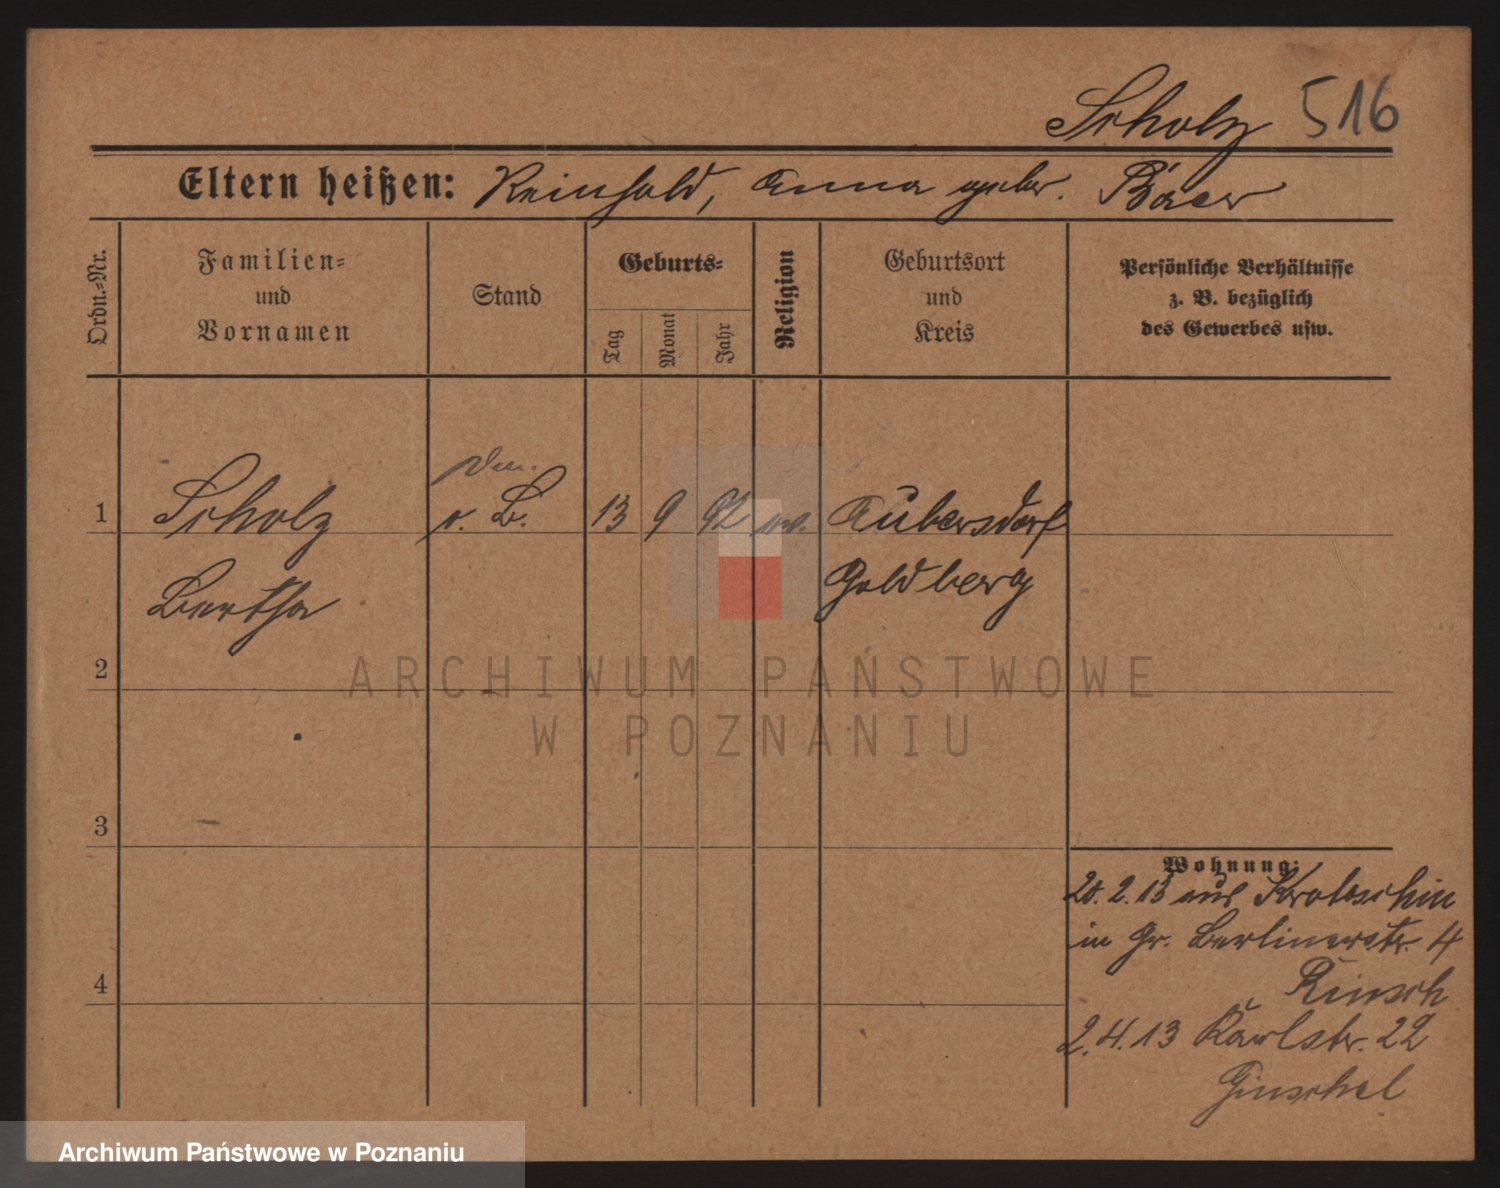 Scholz 516
Eltern heißen: Reinhold, Anna geb. Baer
Ordn.=Nr.
Familien=
und
Vornamen
Stand
Geburts=
Tag
Monat
Jahr
Religion
Geburtsort
und
Kreis
Persönliche Verhältnisse
z. B. bezüglich
des Gewerbes usw.
1 Scholz o. B. 13 9 92 ev. Aubersdorf
Bertha Goldberg
2
3
4
Wohnung:
20.2.13 aus Krotoschin
in Gr. Berlinerstr. 4
2.4.13 Karlstr. 22
ARCHIWUM PAŃSTWOWE
W POZNANIU
Archiwum Państwowe w Poznaniu